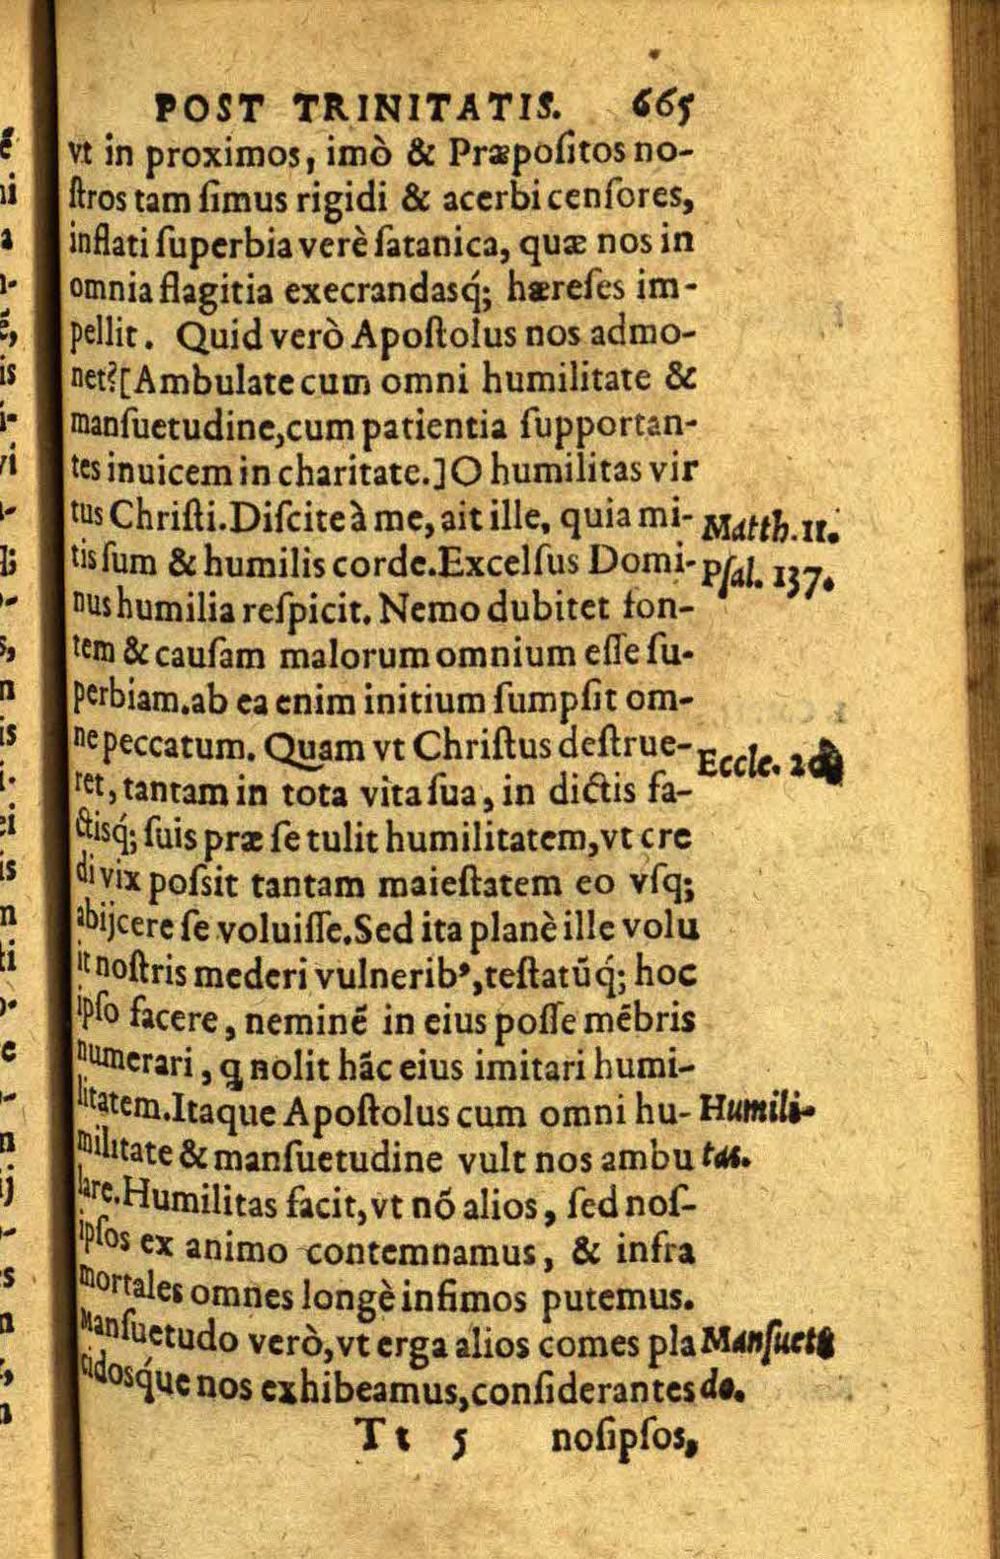 POST TRINITATIS. 665
vt in proximos, imò & Præpoſitos no-
ſtros tam ſimus rigidi & acerbi cenſores,
inflati ſuperbia verè ſatanica, quæ nos in
omnia flagitia execrandasq́; hæreſes im-
pellit. Quid verò Apoſtolus nos admo-
net? [Ambulate cum omni humilitate &
manſuetudine, cum patientia ſupportan-
tes inuicem in charitate.] O humilitas vir
tus Chriſti. Diſcite à me, ait ille, quia mi- Matth. 11.
tis ſum & humilis corde. Excelſus Domi- Pſal. 137.
nus humilia reſpicit. Nemo dubitet fon-
tem & cauſam malorum omnium eſſe ſu-
perbiam. ab ea enim initium ſumpſit om-
ne peccatum. Quam vt Chriſtus deſtrue- Eccle.
ret, tantam in tota vita ſua, in dictis fa-
ctisq́; ſuis præ ſe tulit humilitatem, vt cre
di vix poſsit tantam maieſtatem eo vſq;
abijcere ſe voluiſſe. Sed ita planè ille volu
it noſtris mederi vulnerib⁹, teſtatũq́; hoc
ipſo facere, neminẽ in eius poſſe mẽbris
numerari, q nolit hãc eius imitari humi-
litatem. Itaque Apoſtolus cum omni hu- Humili-
militate & manſuetudine vult nos ambu tas.
lare. Humilitas facit, vt nõ alios, ſed noſ-
ipſos ex animo contemnamus, & infra
mortales omnes longè infimos putemus.
Manſuetudo verò, vt erga alios comes pla Manſuetu
cidosq́ue nos exhibeamus, conſiderantes do.
Tt 5 noſipſos,